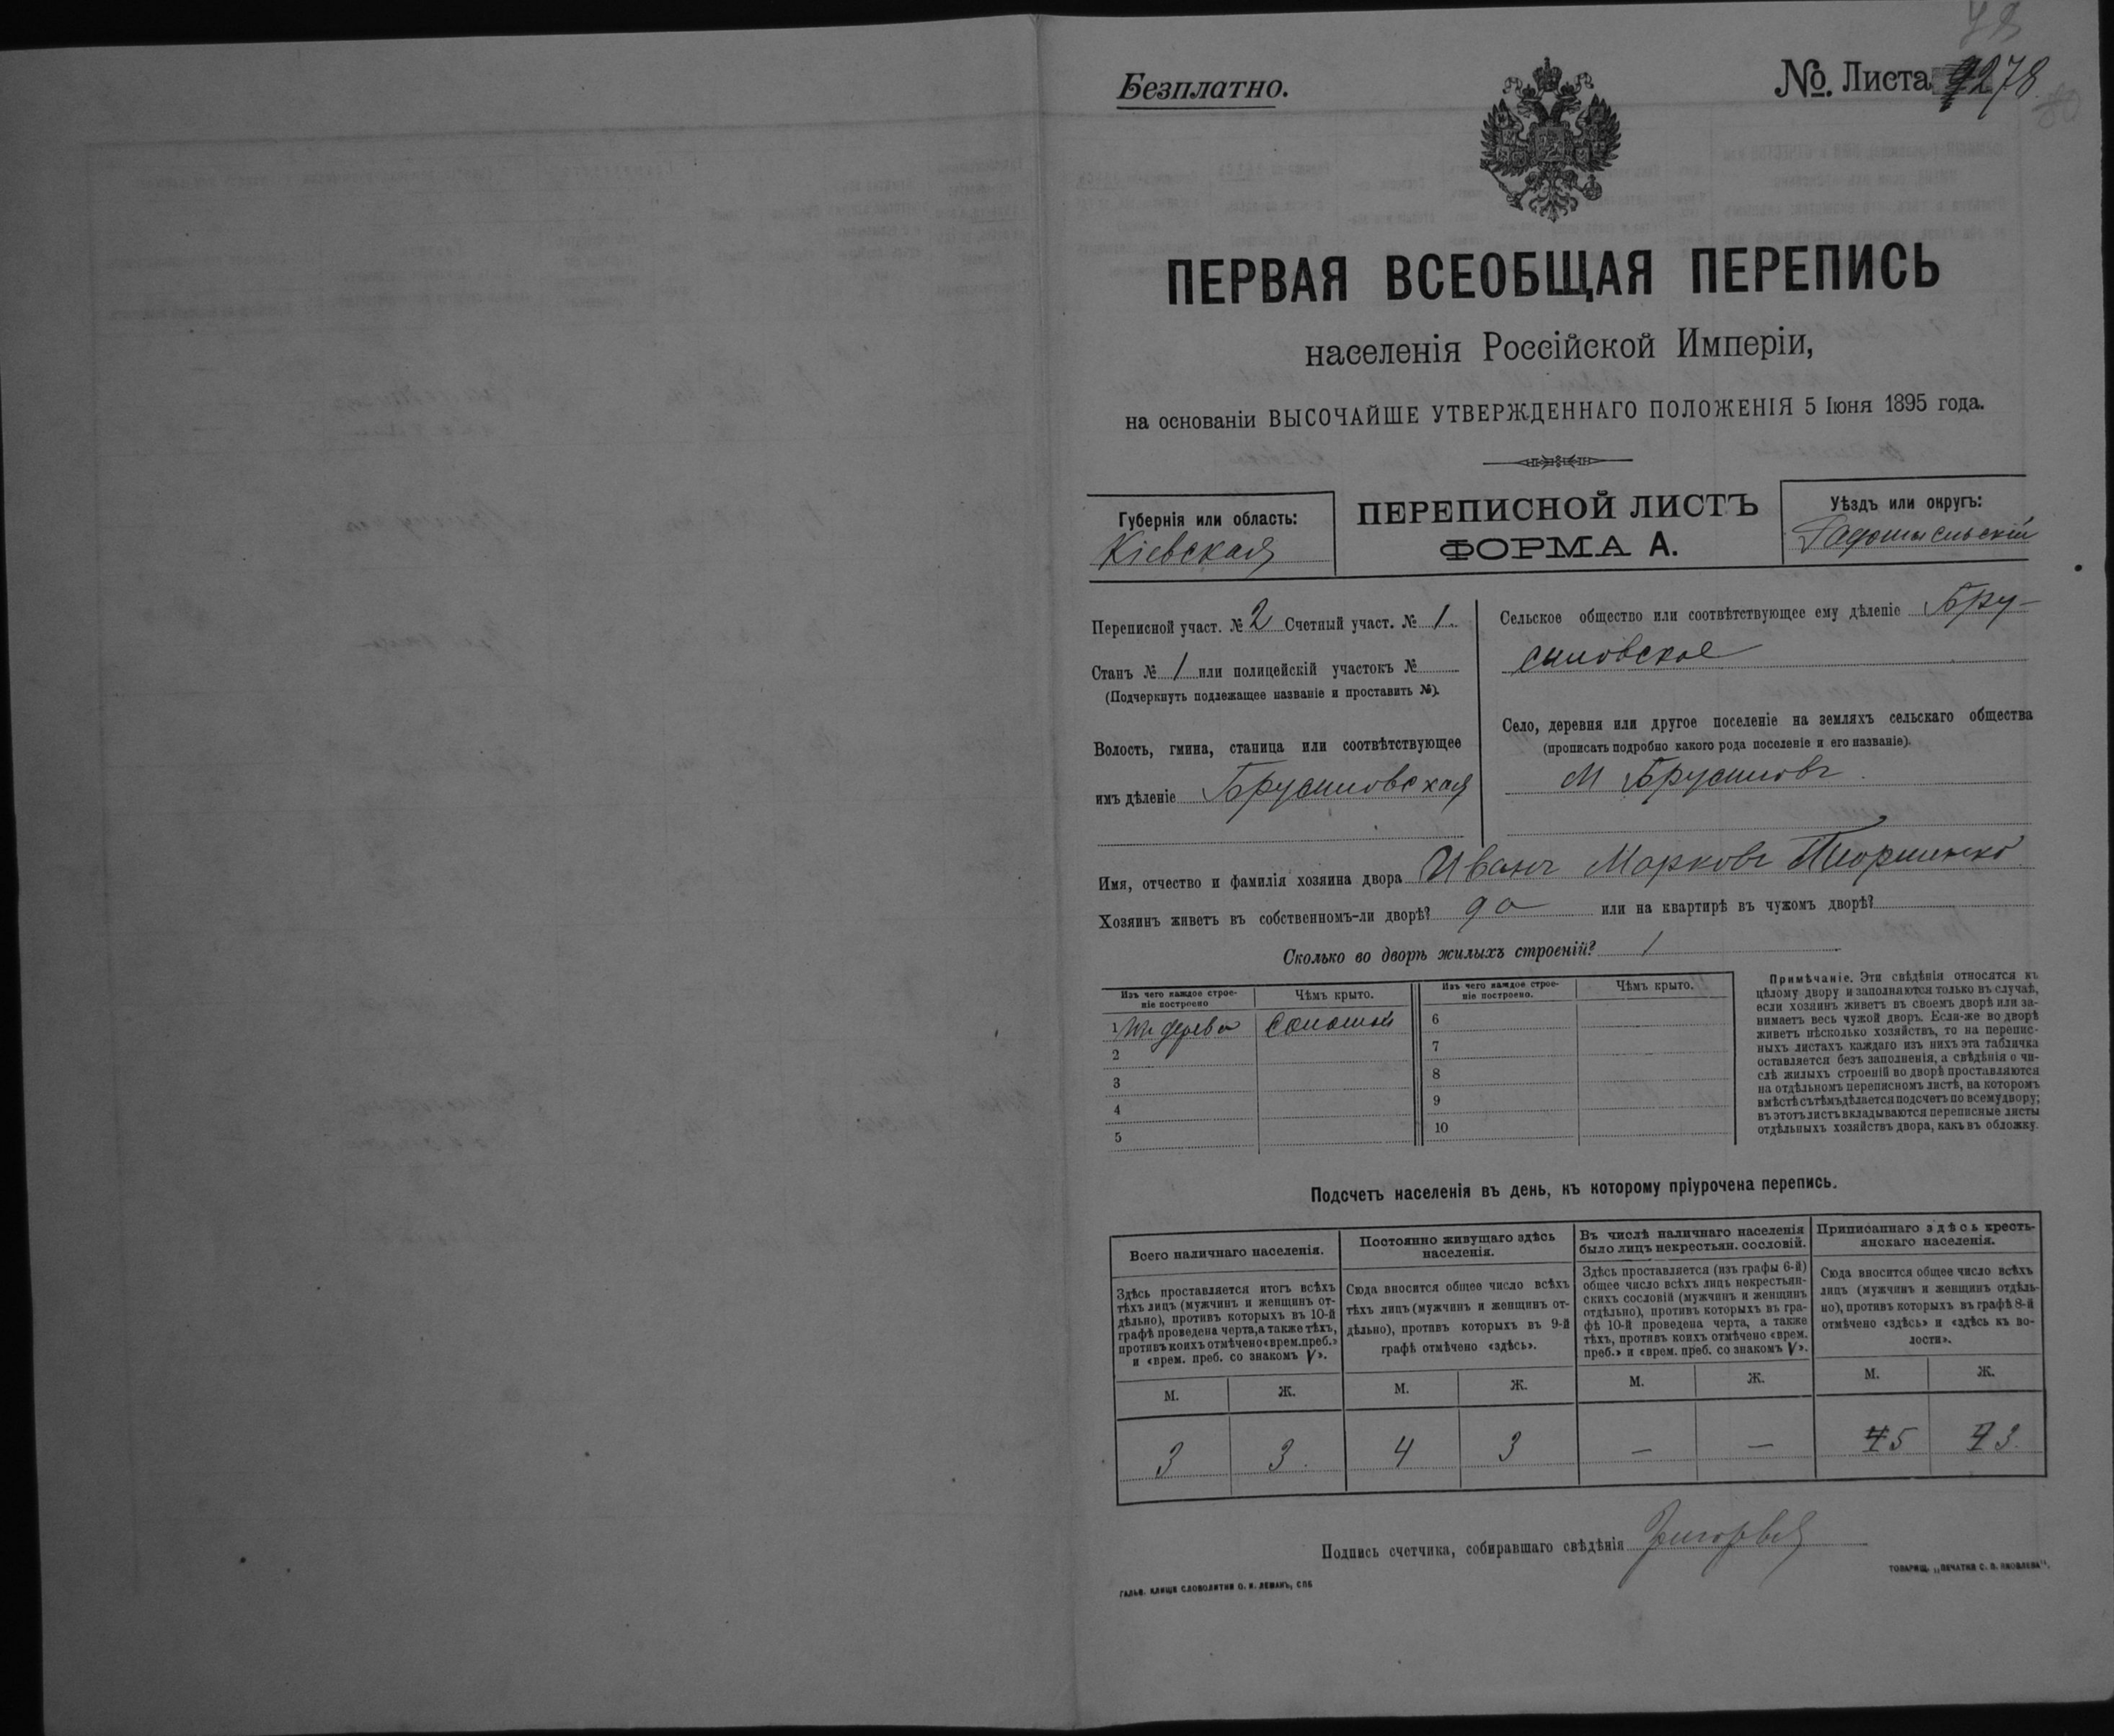 Безплатно.
№. Листа 278
ПЕРВАЯ ВСЕОБЩАЯ ПЕРЕПИСЬ
населенія Россійской Имперіи,
на основаніи ВЫСОЧАЙШЕ УТВЕРЖДЕННАГО ПОЛОЖЕНІЯ 5 Іюня 1895 года.
Губернія или область:
Кіевская
ПЕРЕПИСНОЙ ЛИСТЪ
ФОРМА А.
Уѣздъ или округъ:
Радомысльскій
Переписной участ. № 2 Счетный участ. № 1
Станъ № 1 или полицейскій участокъ №
(Подчеркнуть подлежащее названіе и проставить №).
Волость, гмина, станица или соотвѣтствующее
имъ дѣленіе Брусиловская
Сельское общество или соотвѣтствующее ему дѣленіе Бру-
силовское
Село, деревня или другое поселеніе на земляхъ сельскаго общества
(прописать подробно какого рода поселеніе и его названіе).
М Брусиловъ
Имя, отчество и фамилія хозяина двора Иванъ Марковъ
Хозяинъ живетъ въ собственномъ-ли дворѣ? да или на квартирѣ въ чужомъ дворѣ?
Сколько во дворѣ жилыхъ строеній? 1
Изъ чего каждое строе-
ніе построено
Чѣмъ крыто.
Изъ чего каждое строе-
ніе построено.
Чѣмъ крыто.
1 Изъ дерева Соломой
2
3
4
5
6
7
8
9
10
Примѣчаніе. Эти свѣдѣнія относятся къ
цѣлому двору и заполняются только въ случаѣ,
если хозяинъ живетъ въ своемъ дворѣ или за-
нимаетъ весь чужой дворъ. Если-же во дворѣ
живетъ нѣсколько хозяйствъ, то на перепис-
ныхъ листахъ каждаго изъ нихъ эта табличка
оставляется безъ заполненія, а свѣдѣнія о чи-
слѣ жилыхъ строеній во дворѣ проставляются
на отдѣльномъ переписномъ листѣ, на которомъ
вмѣстѣ съ тѣмъ дѣлается подсчетъ по всему двору;
въ этотъ листъ вкладываются переписные листы
отдѣльныхъ хозяйствъ двора, какъ въ обложку.
Подсчетъ населенія въ день, къ которому пріурочена перепись.
Всего наличнаго населенія.
Здѣсь проставляется итогъ всѣхъ
тѣхъ лицъ (мужчинъ и женщинъ от-
дѣльно), противъ которыхъ въ 10-й
графѣ проведена черта, а также тѣхъ,
противъ коихъ отмѣчено «врем. преб.»
и «врем. преб. со знакомъ V».
М. Ж.
3 3.
Постоянно живущаго здѣсь
населенія.
Сюда вносится общее число всѣхъ
тѣхъ лицъ (мужчинъ и женщинъ от-
дѣльно), противъ которыхъ въ 9-й
графѣ отмѣчено «здѣсь».
М. Ж.
4 3
Въ числѣ наличнаго населенія
было лицъ некрестьян. сословій.
Здѣсь проставляется (изъ графы 6-й)
общее число всѣхъ лицъ некрестьян-
скихъ сословій (мужчинъ и женщинъ
отдѣльно), противъ которыхъ въ гра-
фѣ 10-й проведена черта, а также
тѣхъ, противъ коихъ отмѣчено «врем.
преб.» и «врем. преб. со знакомъ V».
М. Ж.
— —
Приписаннаго здѣсь кресть-
янскаго населенія.
Сюда вносится общее число всѣхъ
лицъ (мужчинъ и женщинъ отдѣль-
но), противъ которыхъ въ графѣ 8-й
отмѣчено «здѣсь» и «здѣсь къ во-
лости».
М. Ж.
5 3.
Подпись счетчика, собиравшаго свѣдѣнія
ГАЛЬВ. КЛИШЕ СЛОВОЛИТНИ О. И. ЛЕМАНЪ, СПБ
ТОВАРИЩ. „ПЕЧАТНЯ С. П. ЯКОВЛЕВА".